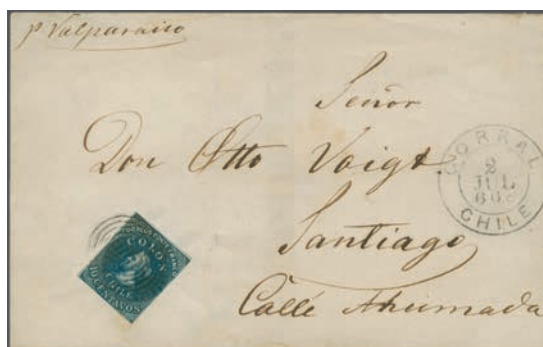 p Valparaiso
Señor
Don Otto Voigt.
Santiago
Calle Ahumada
CORRAL
2
JUL
CHILE
COLON
CHILE
10 CENTAVOS